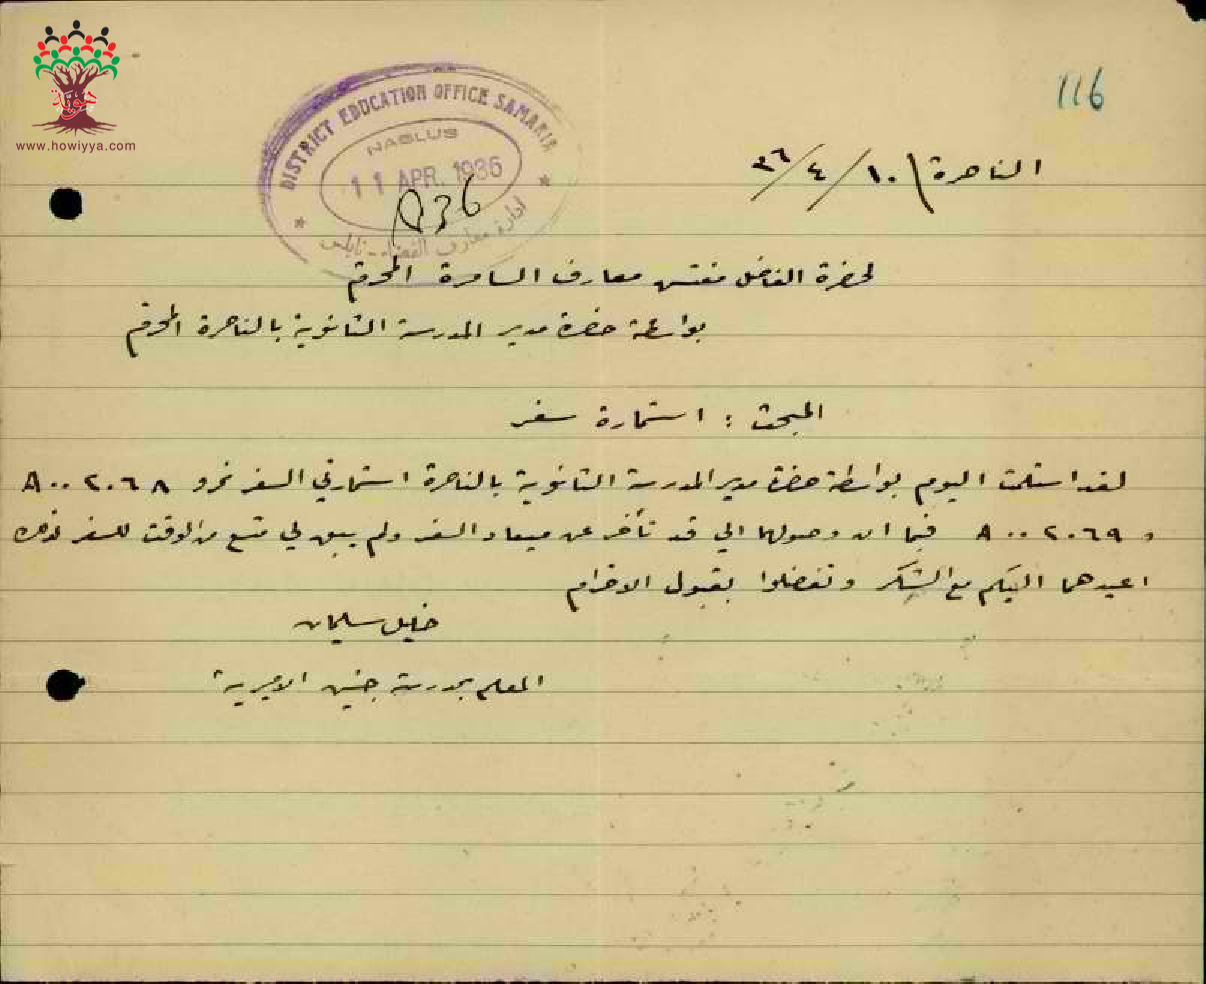 هوية
www.howiyya.com
116
DISTRICT EDUCATION OFFICE SAMARIA
NABLUS
11 APR. 1936
A36
ادارة معارف القضاء - نابلس
الناصرة ١٠/٤/٣٦
لحضرة الفاضل مفتش معارف السامرة المحترم
بواسطة حضرة مدير المدرسة الثانوية بالناصرة المحترم
المبحث : استمارة سفر
لقد استلمت اليوم بواسطة حضرة مدير المدرسة الثانوية بالناصرة استمارتي السفر نمرو A٠٠٢٠٦٨
و A٠٠٢٠٦٩ فبما ان وصولهما الي قد تأخر عن ميعاد السفر ولم يبق لي متسع من الوقت للسفر لذلك
اعيدهما اليكم مع الشكر وتفضلوا بقبول الاحترام
خليل سليمان
المعلم بمدرسة جنين الاميرية